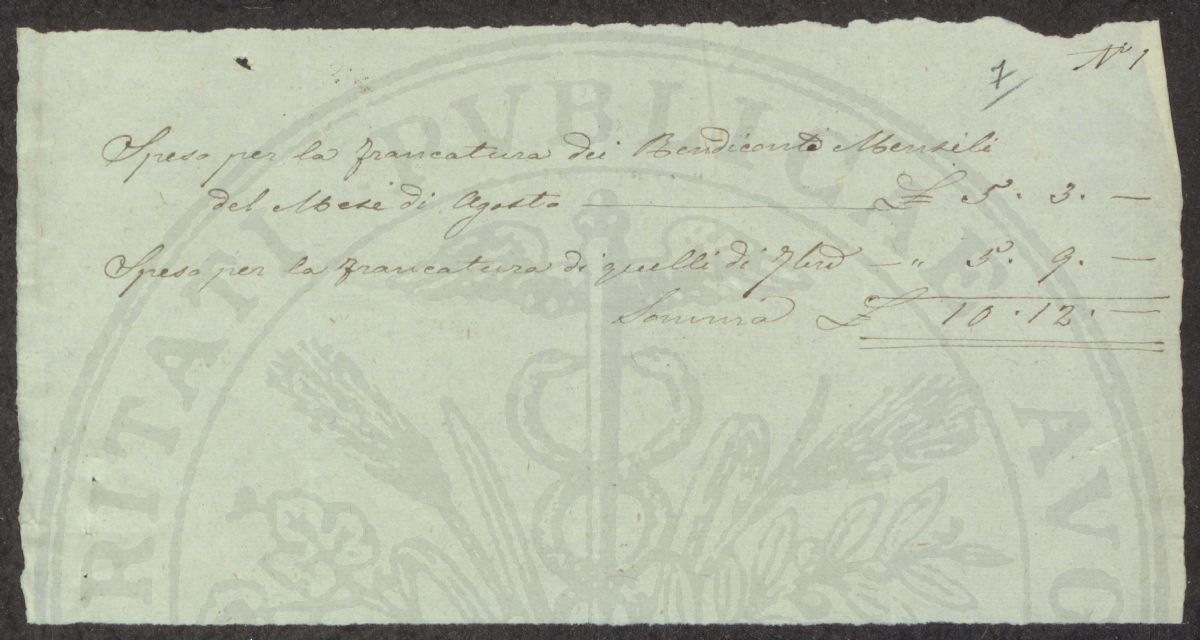 N° 1
7
Speso per la francatura dei Rendiconti Mensili
del Mese di Agosto £ 5. 3. —
Speso per la francatura di quelli di 7bre — " 5. 9. —
Somma £ 10. 12. —
RITATI PVBLICAE AVG